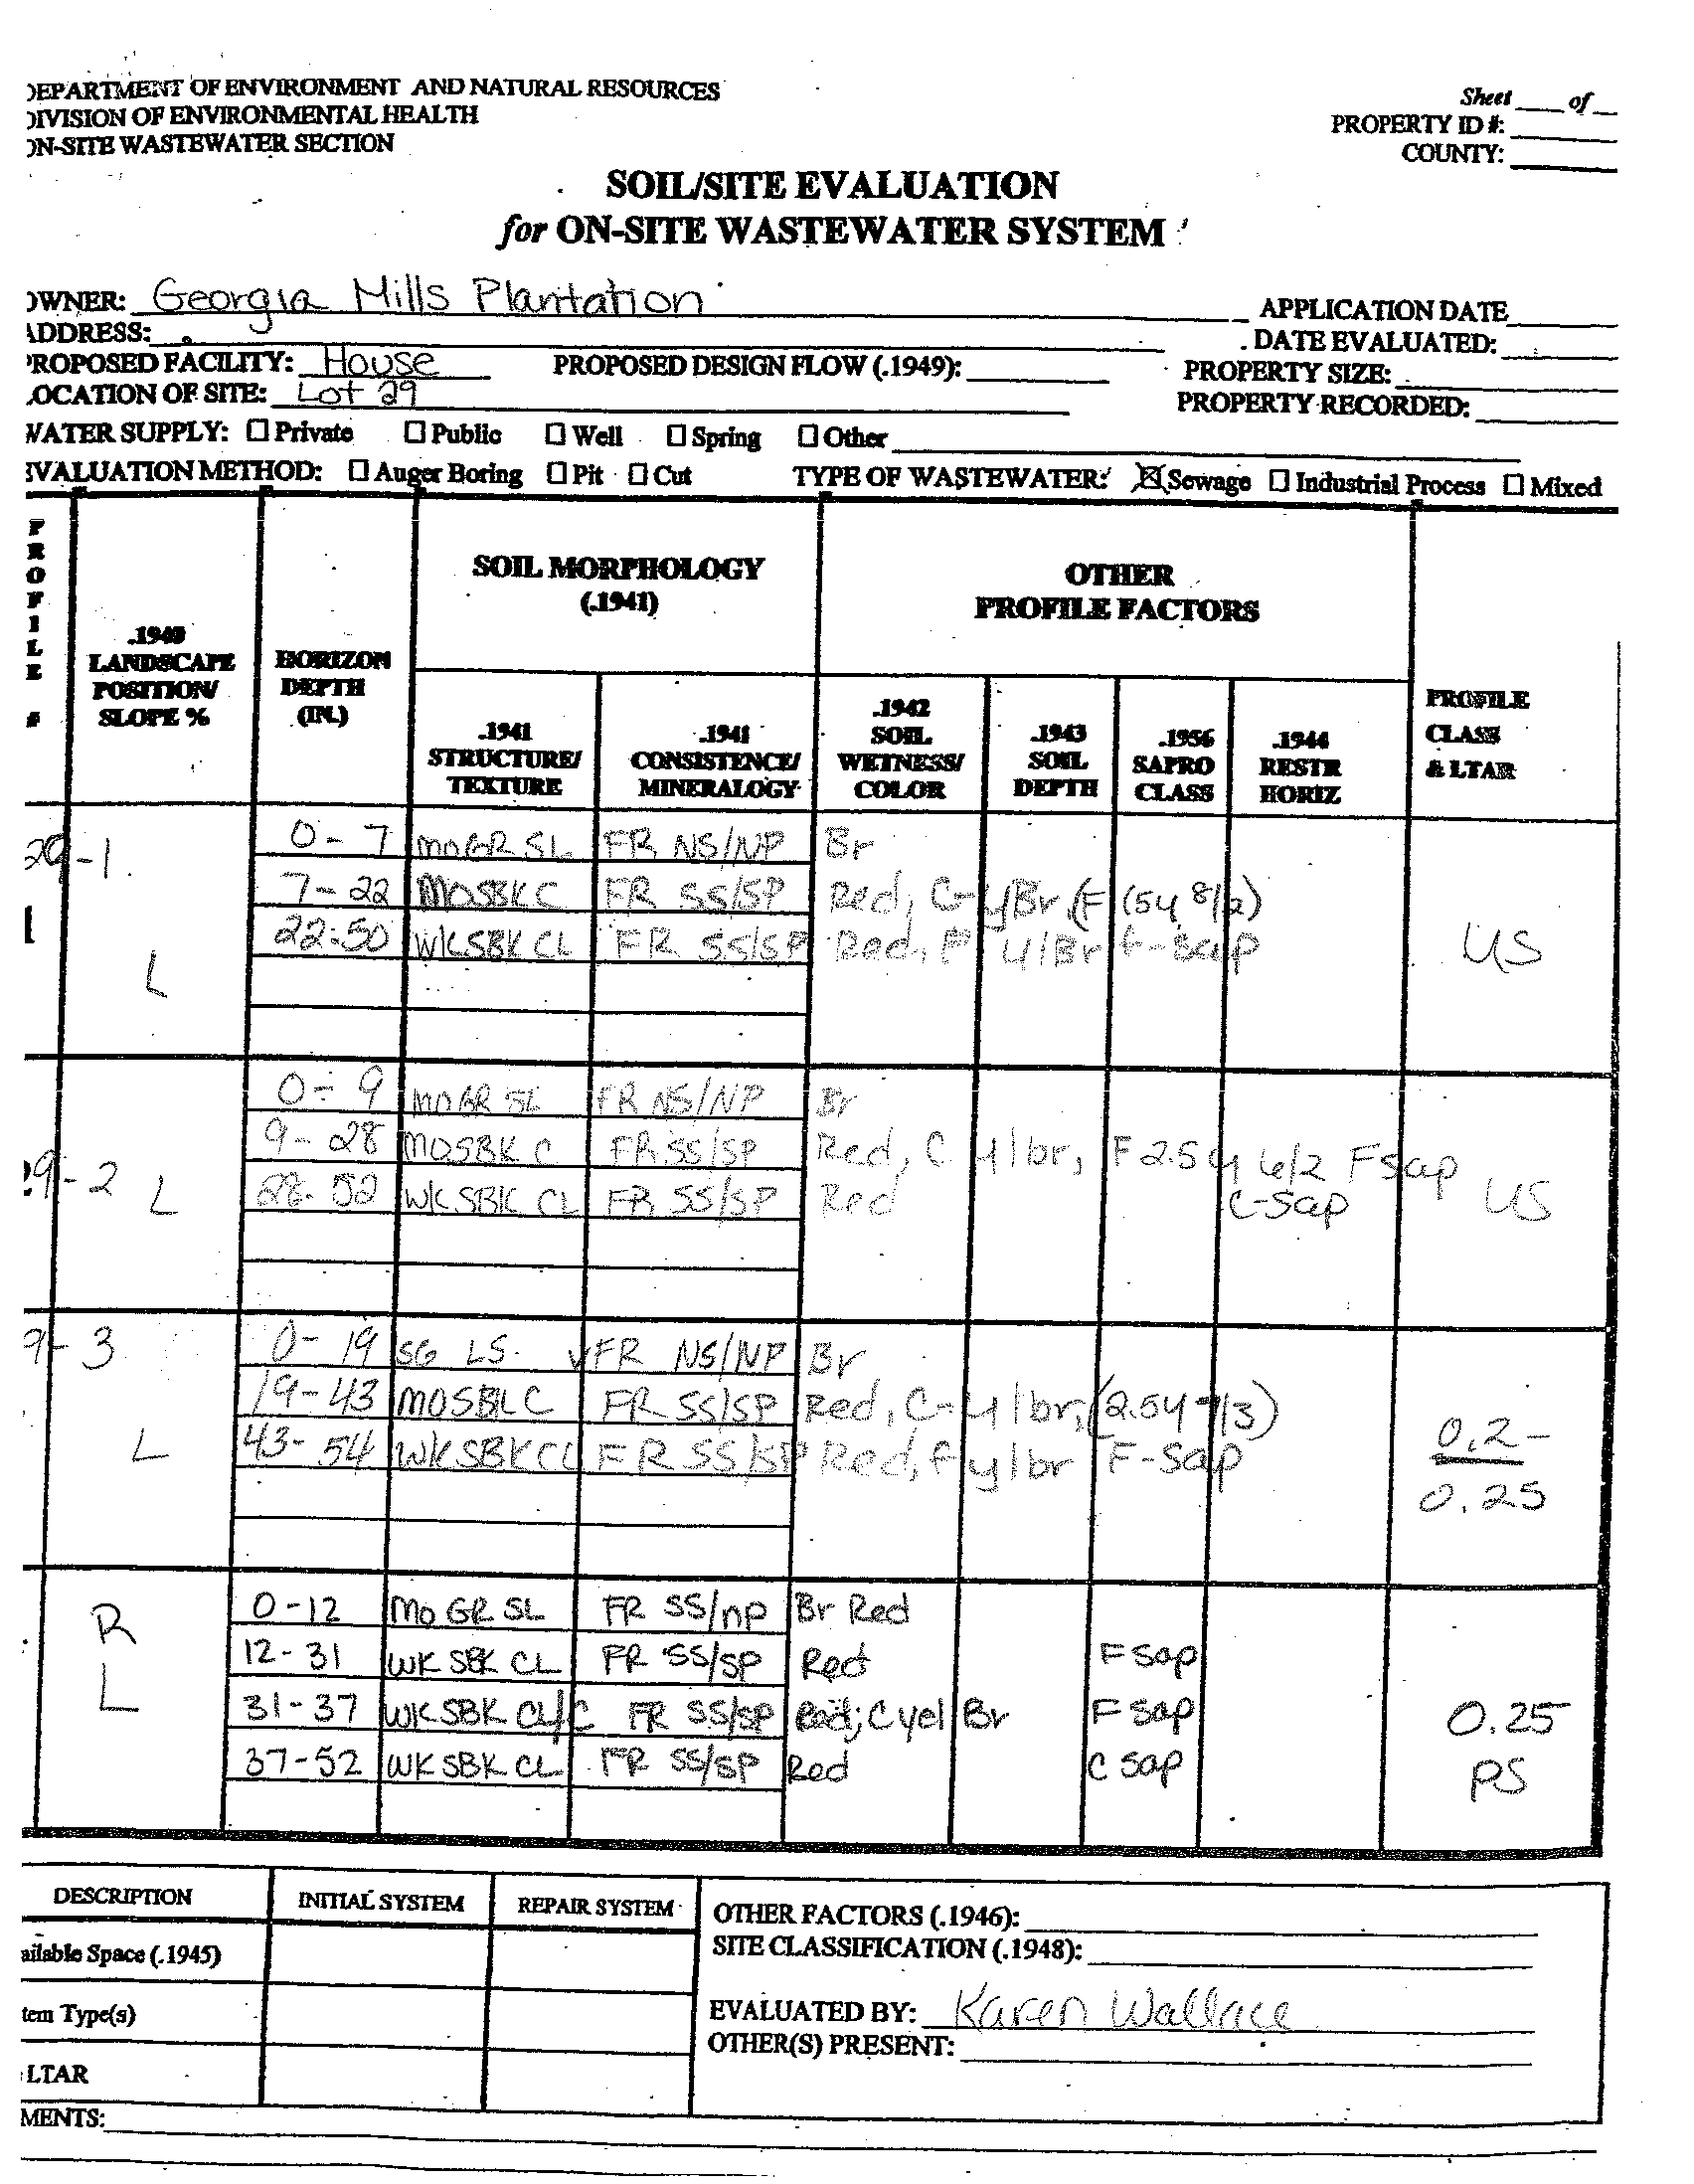 DEPARTMENT OF ENVIRONMENT AND NATURAL RESOURCES
DIVISION OF ENVIRONMENTAL HEALTH
ON-SITE WASTEWATER SECTION
Sheet ____ of __
PROPERTY ID #:
COUNTY:
SOIL/SITE EVALUATION
for ON-SITE WASTEWATER SYSTEM
OWNER: Georgia Mills Plantation
APPLICATION DATE
ADDRESS:
DATE EVALUATED:
PROPOSED FACILITY: House PROPOSED DESIGN FLOW (.1949): PROPERTY SIZE:
LOCATION OF SITE: Lot 29 PROPERTY RECORDED:
WATER SUPPLY: ☐ Private ☐ Public ☐ Well ☐ Spring ☐ Other
EVALUATION METHOD: ☐ Auger Boring ☐ Pit ☐ Cut TYPE OF WASTEWATER: ☒ Sewage ☐ Industrial Process ☐ Mixed
PROFILE #
.1940 LANDSCAPE POSITION/ SLOPE %
HORIZON DEPTH (IN.)
SOIL MORPHOLOGY (.1941)
OTHER PROFILE FACTORS
.1941 STRUCTURE/ TEXTURE
.1941 CONSISTENCE/ MINERALOGY
.1942 SOIL WETNESS/ COLOR
.1943 SOIL DEPTH
.1956 SAPRO CLASS
.1944 RESTR HORIZ
PROFILE CLASS & LTAR
29-1 L
0-7 MOGR SL FR NS/NP Br
7-22 MOSBK C FR SS/SP Red, C-y/Br, (F (5y 8/2)
22-50 WKSBK CL FR SS/SP Red, F y/Br f-Sap
US
29-2 L
0-9 MOGR SL FR NS/NP Br
9-28 MOSBK C FR SS/SP Red, C y/br, F 2.5y 6/2 F sap
28-52 WKSBK CL FR SS/SP Red C-Sap
US
9-3 L
0-19 SG LS VFR NS/NP Br
19-43 MOSBK C FR SS/SP Red, C-y/br, (2.5y 7/3)
43-54 WKSBK CL FR SS/SP Red, f y/br F-Sap
0.2-
0.25
R
L
0-12 MO GR SL FR SS/np Br Red
12-31 WK SBK CL FR SS/SP Red F Sap
31-37 WK SBK CL/C FR SS/SP Red; C yel Br F Sap
37-52 WK SBK CL FR SS/SP Red C Sap
0.25
PS
DESCRIPTION INITIAL SYSTEM REPAIR SYSTEM
OTHER FACTORS (.1946):
ailable Space (.1945)
SITE CLASSIFICATION (.1948):
tem Type(s)
EVALUATED BY: Karen Wallace
OTHER(S) PRESENT:
LTAR
MENTS: